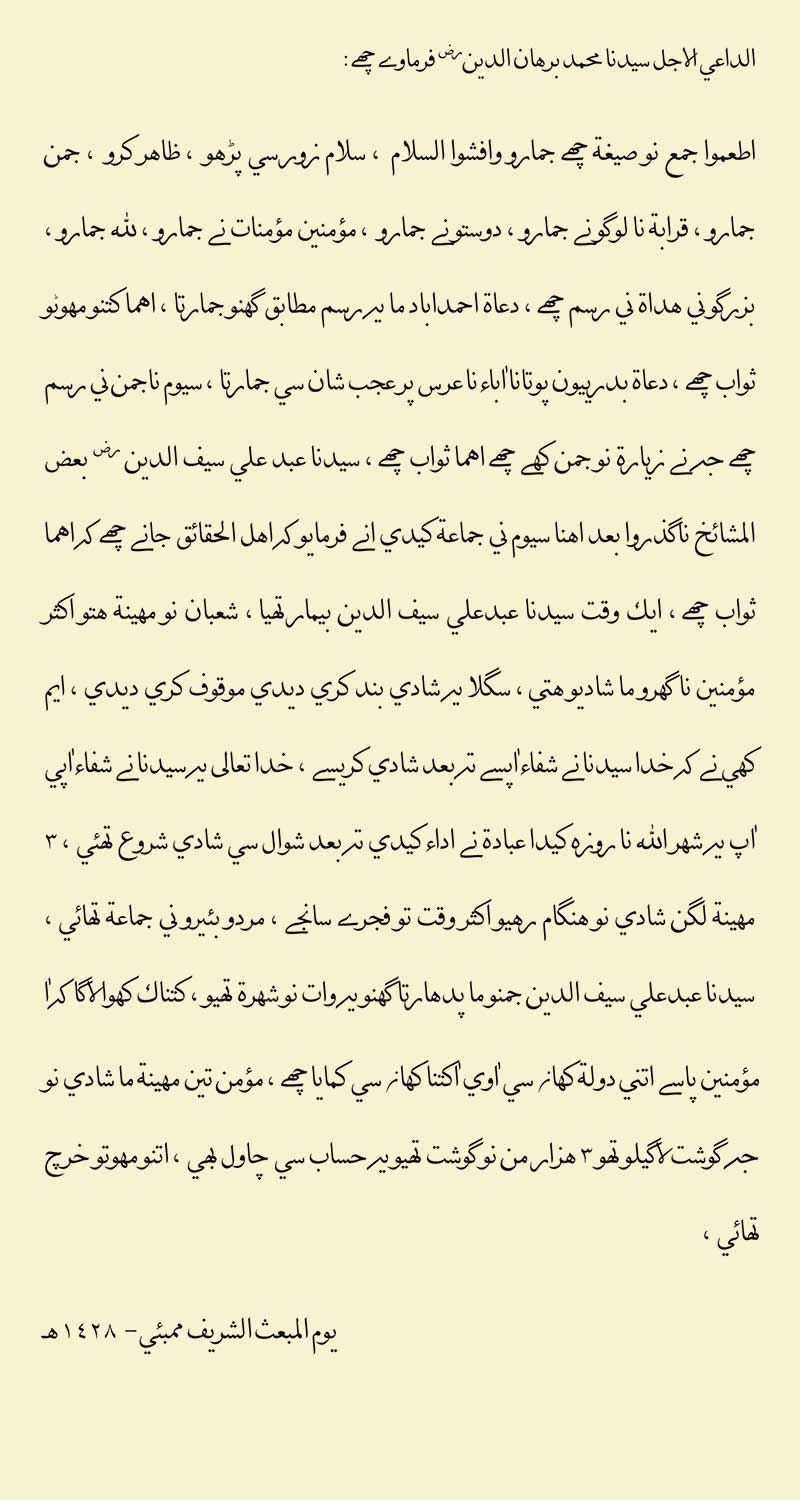 الداعي الاجل سيدنا محمد برهان الدين رض فرماوے چھے:
اطعموا جمع نو صيغة چھے جمارو وافشوا السلام ، سلام زورسي پڑهو ، ظاهر كرو ، جمن
جمارو ، قرابة نا لوگو نے جمارو ، دوستو نے جمارو ، مؤمنين مؤمنات نے جمارو ، لله جمارو ،
بزرگو ني هداة ني رسم چھے ، دعاة احمداباد ما يہ رسم مطابق گهنو جمارتا ، اهما كتنو مهوٹو
ثواب چھے ، دعاة بدرييون پوتانا اٰباء نا عرس پر عجب شان سي جمارتا ، سيوم نا جمن ني رسم
چھے جہ نے زيارة نو جمن كهے چھے اهما ثواب چھے ، سيدنا عبد علي سيف الدين رض بعض
المشائخ نا گذروا بعد اهنا سيوم ني جماعة كيدي انے فرمايو كہ اهل الحقائق جانے چھے كہ اهما
ثواب چھے ، ايك وقت سيدنا عبدعلي سيف الدين بيمار تھيا ، شعبان نو مهينة هتو اكثر
مؤمنين نا گهرو ما شاديو هتي ، سگلا يہ شادي بند كري ديدي موقوف كري ديدي ، ايم
كهي نے كہ خدا سيدنا نے شفاء اٰپسے تہ بعد شادي كريسے ، خدا تعالى يہ سيدنا نے شفاء اٰپي
اٰپ يہ شهر الله نا روزه كيدا عبادة نے اداء كيدي تہ بعد شوال سي شادي شروع تھئي ، ٣
مهينة لگن شادي نو هنگام رهيو اكثر وقت تو فجرے سانجے ، مردو بئيرو ني جماعة تھائي ،
سيدنا عبدعلي سيف الدين جمنو ما پدهارتا گهنو يہ وات نو شهرة تھيو ، كتناك كهوا لاگا كہ اٰ
مؤمنين پاسے اتني دولة كهاں سي اٰوي اٰ كتنا كهاں سي كمايا چھے ، مؤمن تين مهينة ما شادي نو
جہ گوشت لاگيلو تھو ٣ هزار من نو گوشت تھيو يہ حساب سي چاول بھي ، اتنو مهوتو خرچ
تھائي ،
يوم المبعث الشريف ممبئي – ١٤٢٨ هـ